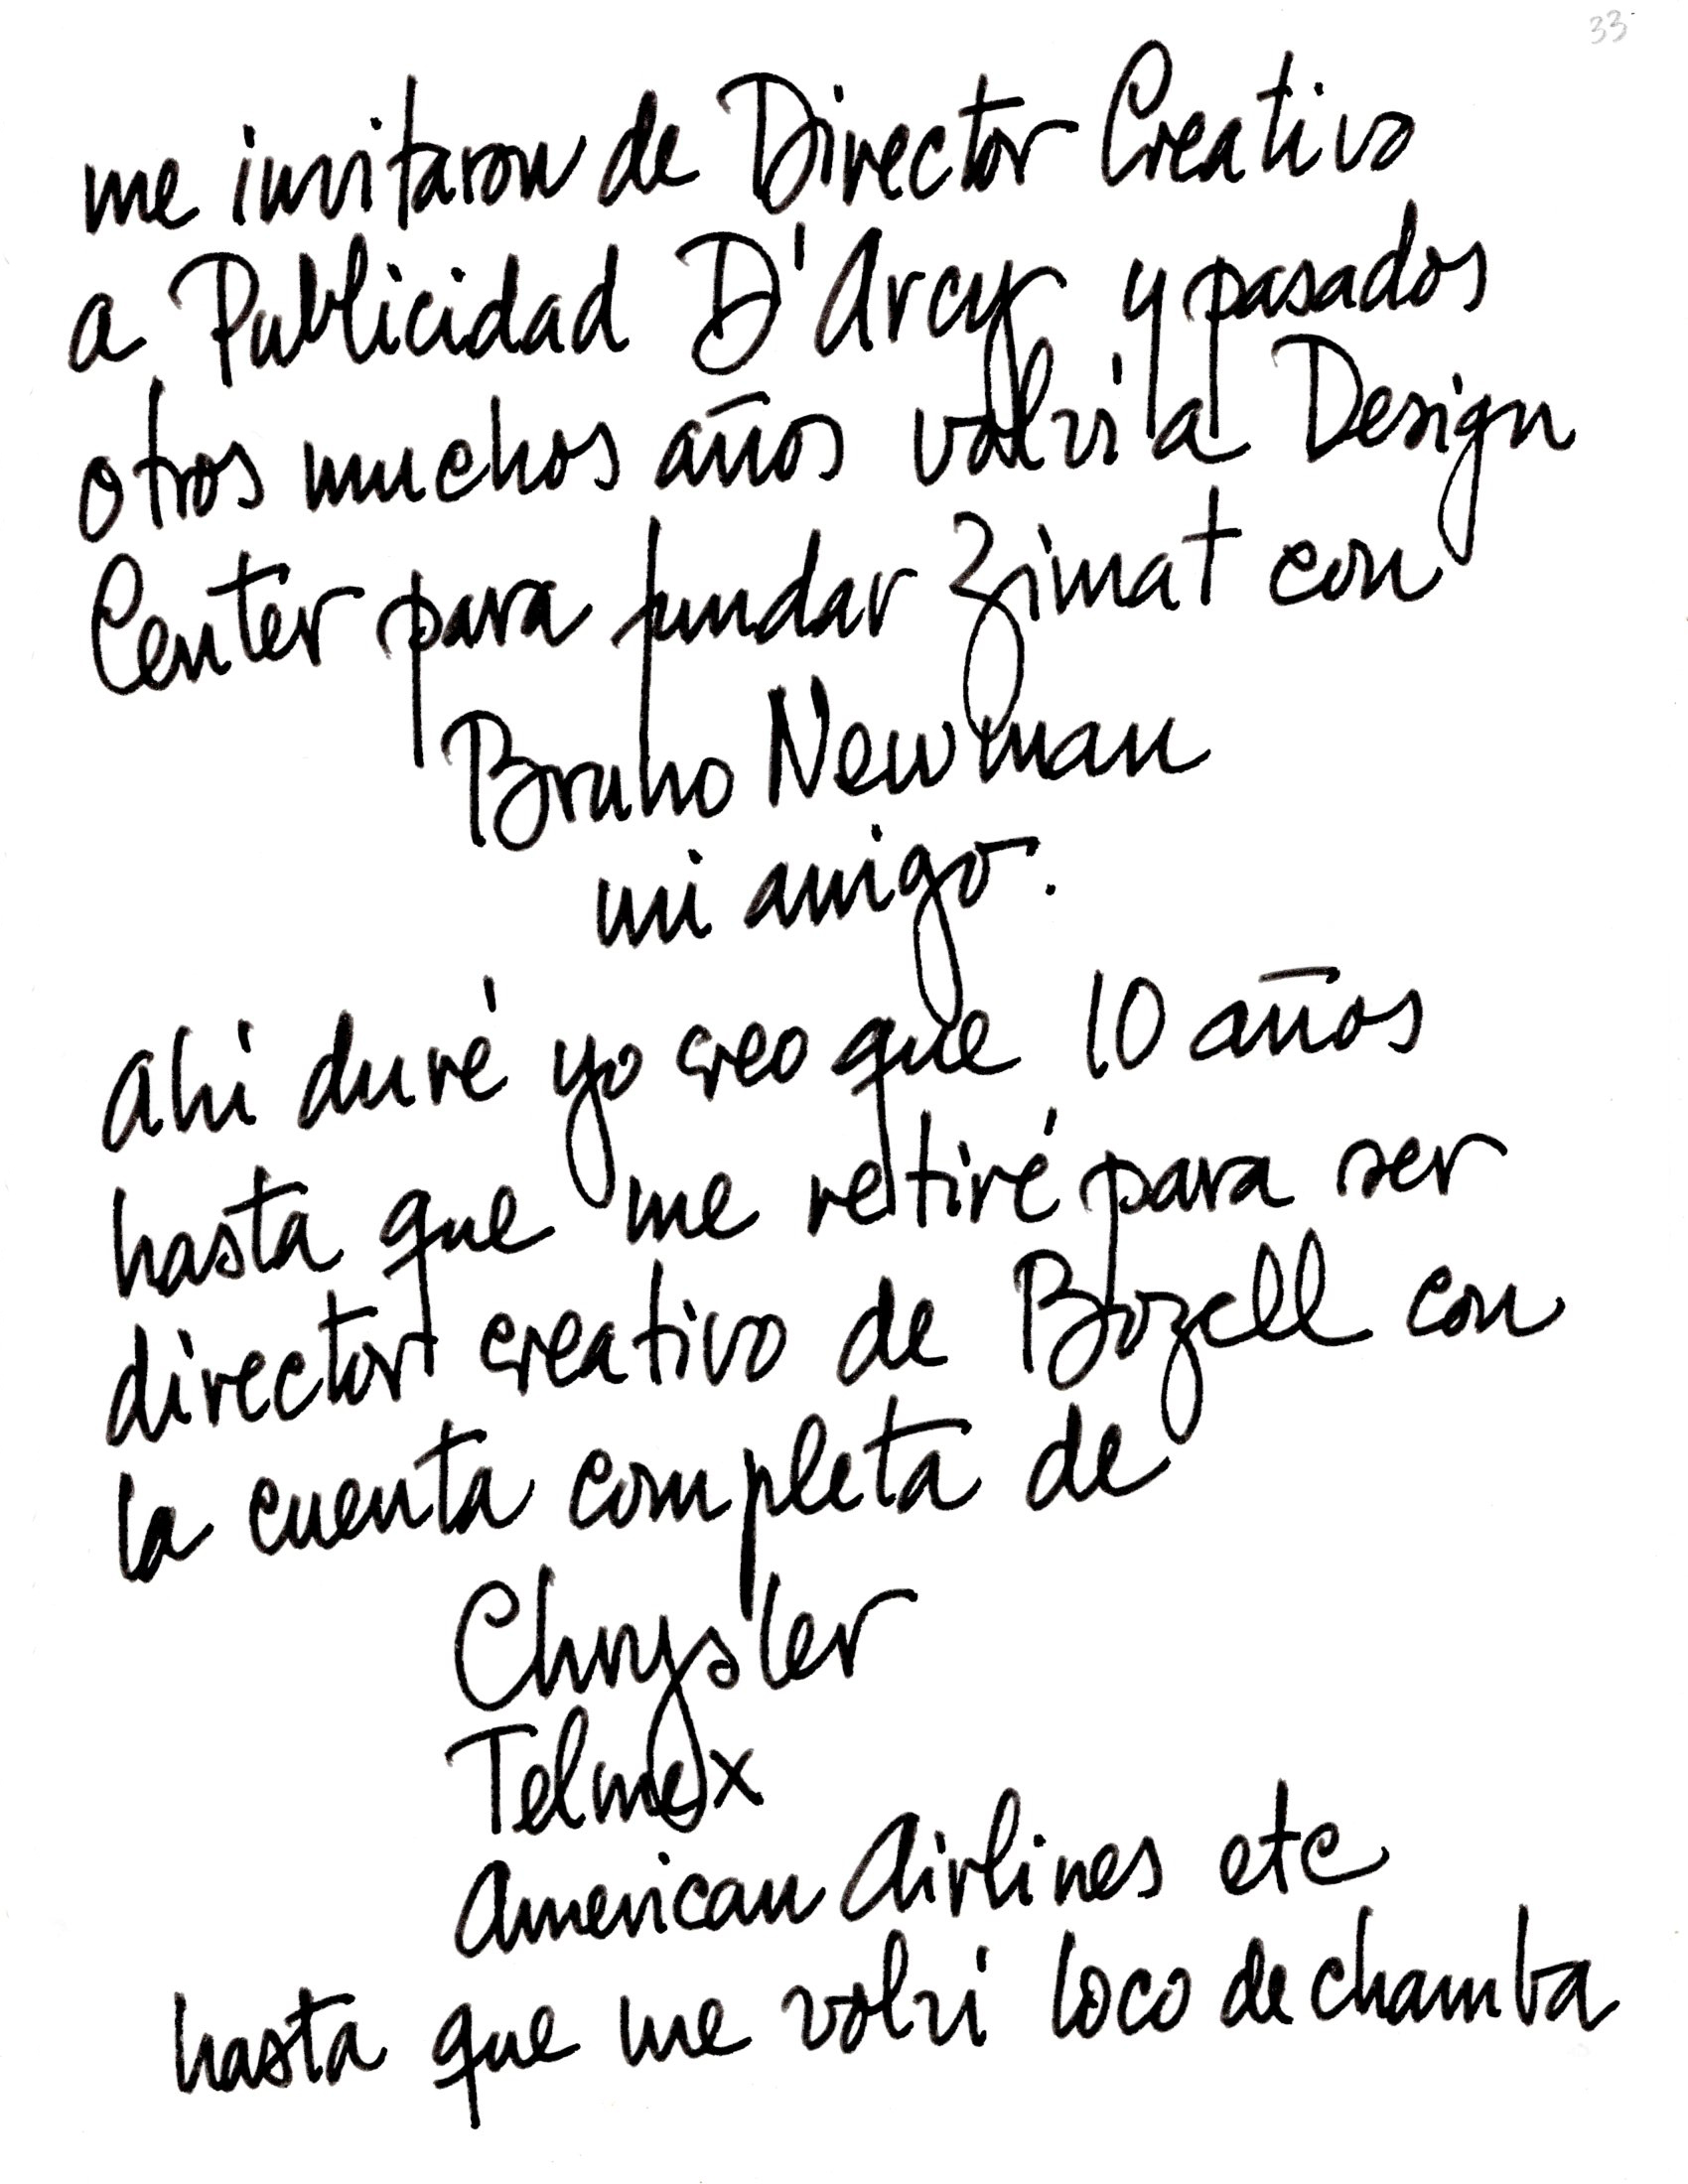 33
me invitaron de Director Creativo
a Publicidad D'Arcy y pasados
otros muchos años volví a Design
Center para fundar Zimat con
Bruno Newman
mi amigo.
Ahi duré yo creo que 10 años
hasta que me retiré para ser
director creativo de Bozell con
la cuenta completa de
Chrysler
Telmex
American Airlines etc
hasta que me volvi loco de chamba